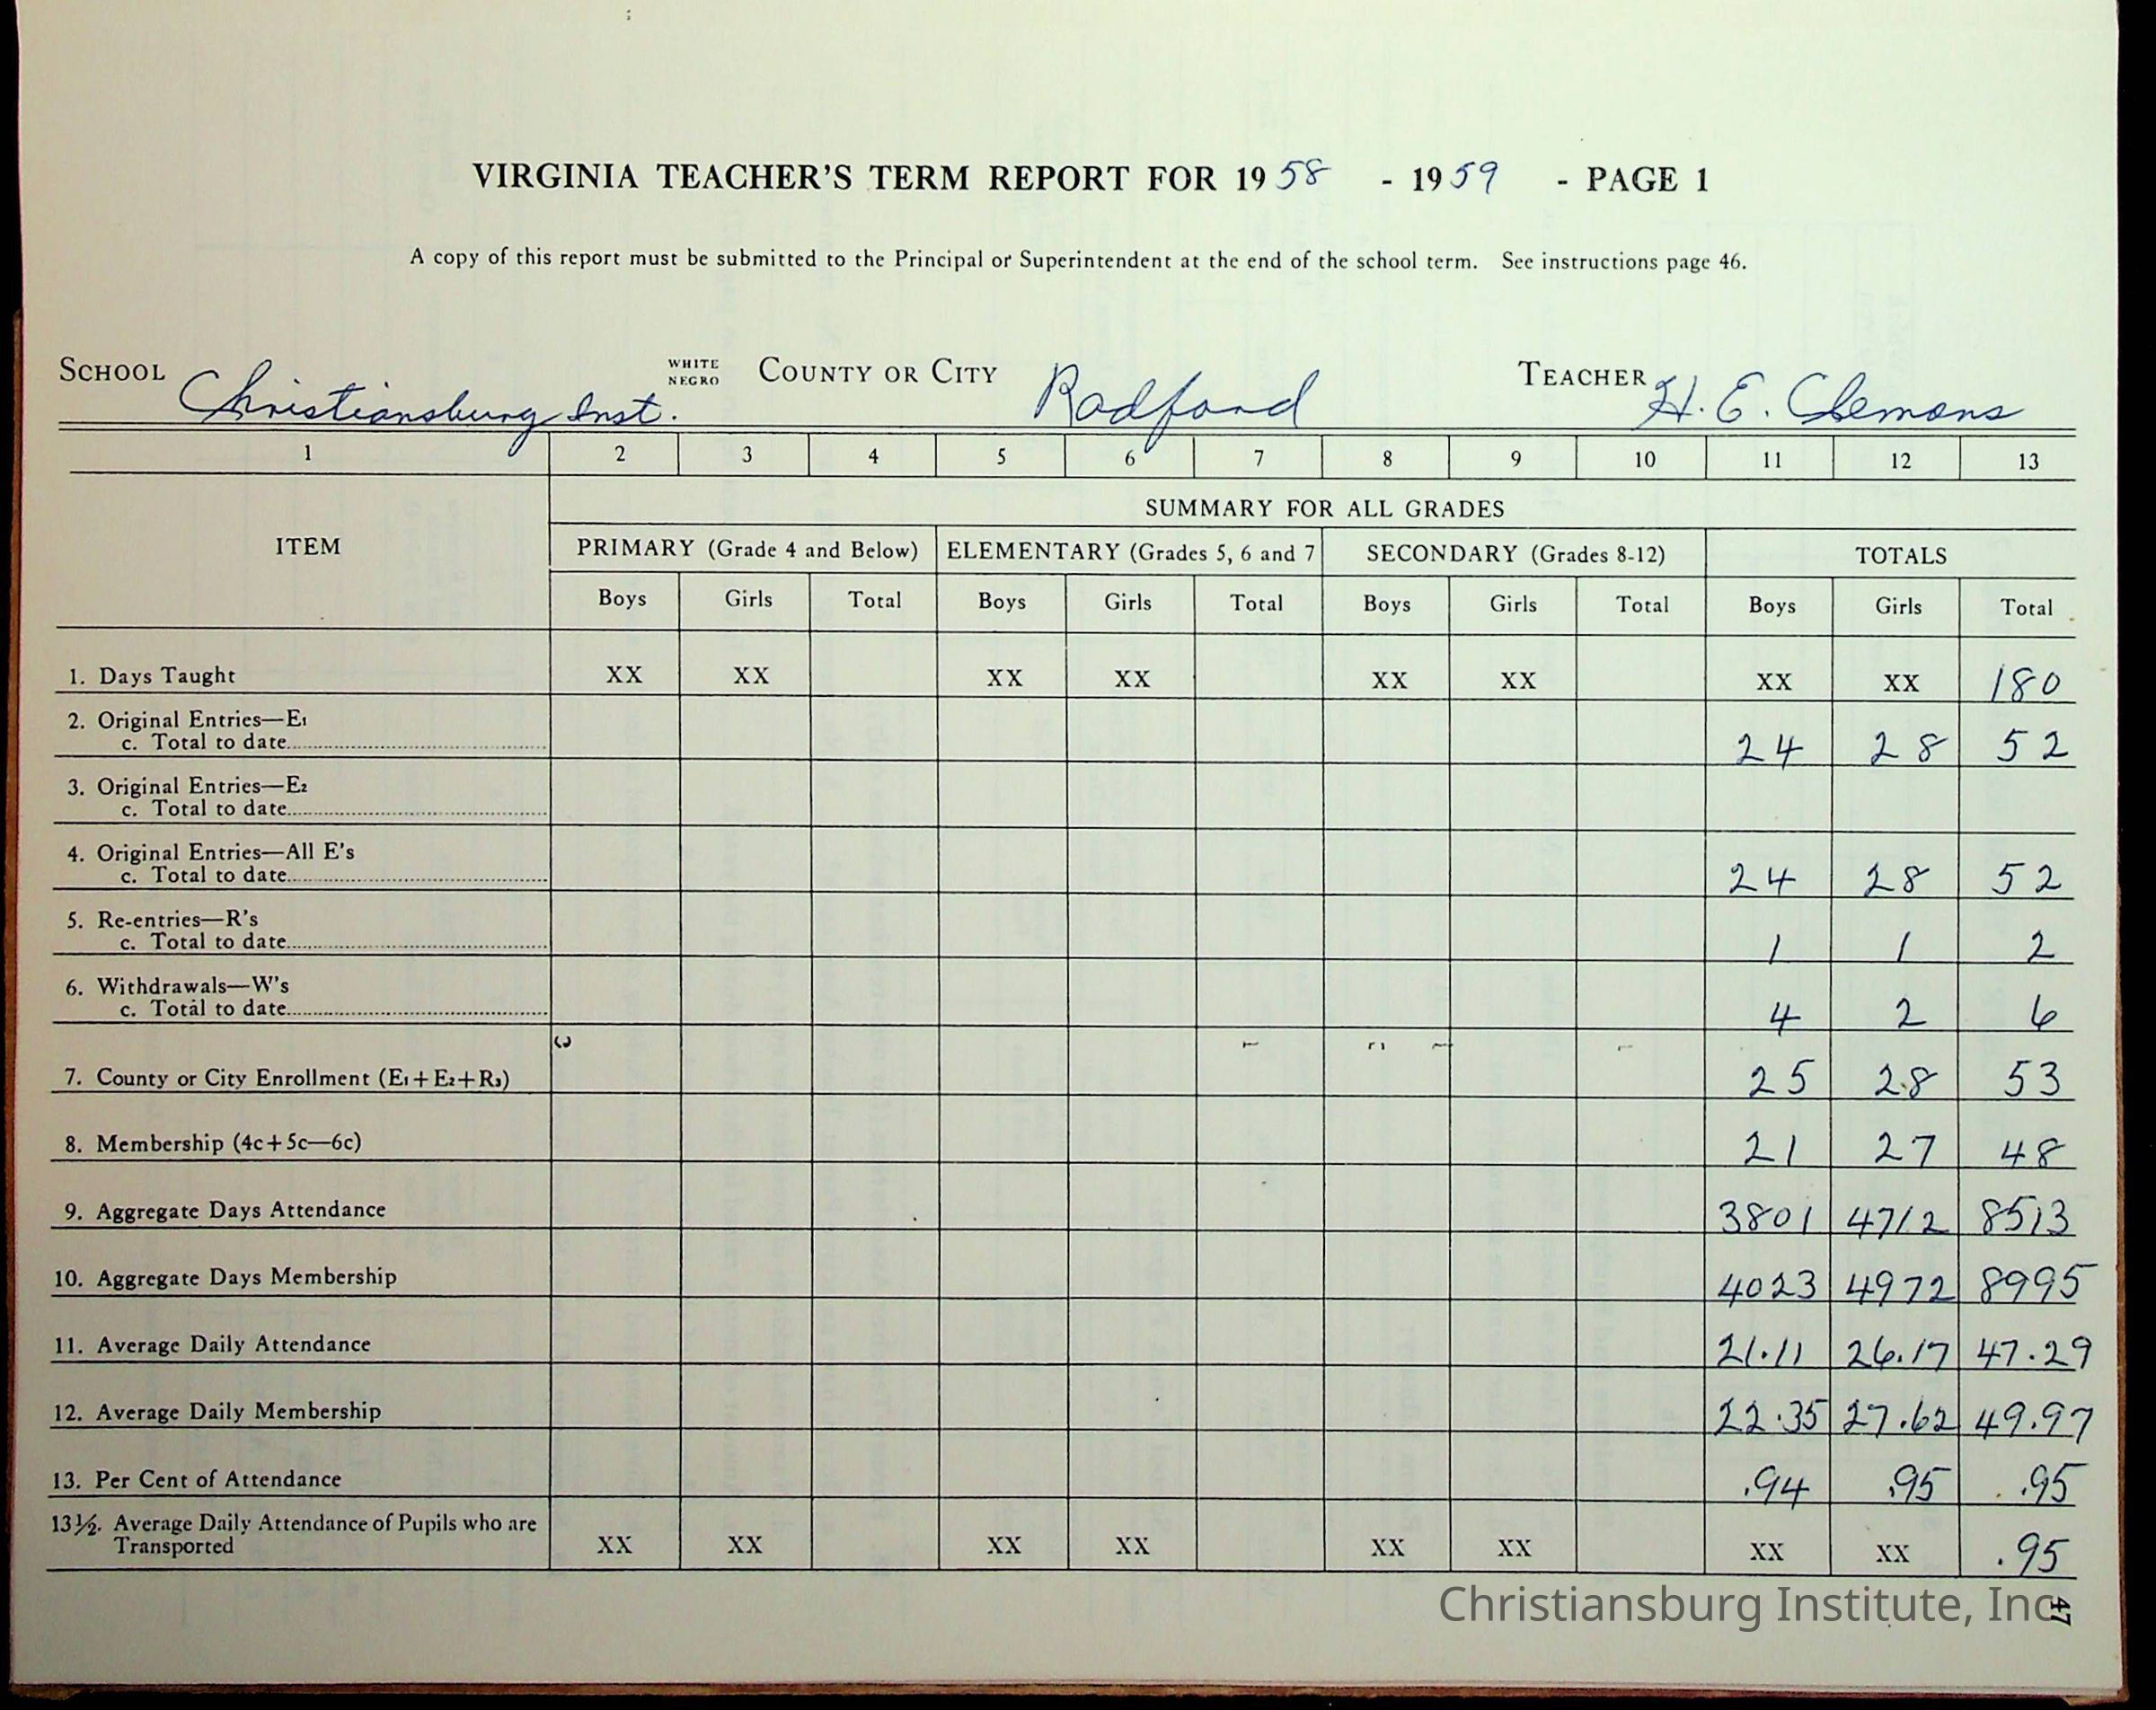 VIRGINIA TEACHER'S TERM REPORT FOR 1958 - 1959 - PAGE 1
A copy of this report must be submitted to the Principal or Superintendent at the end of the school term. See instructions page 46.
SCHOOL Christiansburg Inst. WHITE NEGRO COUNTY OR CITY Radford TEACHER H. E. Clemons
1 2 3 4 5 6 7 8 9 10 11 12 13
SUMMARY FOR ALL GRADES
ITEM PRIMARY (Grade 4 and Below) ELEMENTARY (Grades 5, 6 and 7 SECONDARY (Grades 8-12) TOTALS
Boys Girls Total Boys Girls Total Boys Girls Total Boys Girls Total
1. Days Taught XX XX XX XX XX XX XX XX 180
2. Original Entries—E1
c. Total to date 24 28 52
3. Original Entries—E2
c. Total to date
4. Original Entries—All E's
c. Total to date 24 28 52
5. Re-entries—R's
c. Total to date 1 1 2
6. Withdrawals—W's
c. Total to date 4 2 6
7. County or City Enrollment (E1+E2+R3) 25 28 53
8. Membership (4c+5c—6c) 21 27 48
9. Aggregate Days Attendance 3801 4712 8513
10. Aggregate Days Membership 4023 4972 8995
11. Average Daily Attendance 21.11 26.17 47.29
12. Average Daily Membership 22.35 27.62 49.97
13. Per Cent of Attendance .94 .95 .95
13½. Average Daily Attendance of Pupils who are
Transported XX XX XX XX XX XX XX XX .95
Christiansburg Institute, Inc
47